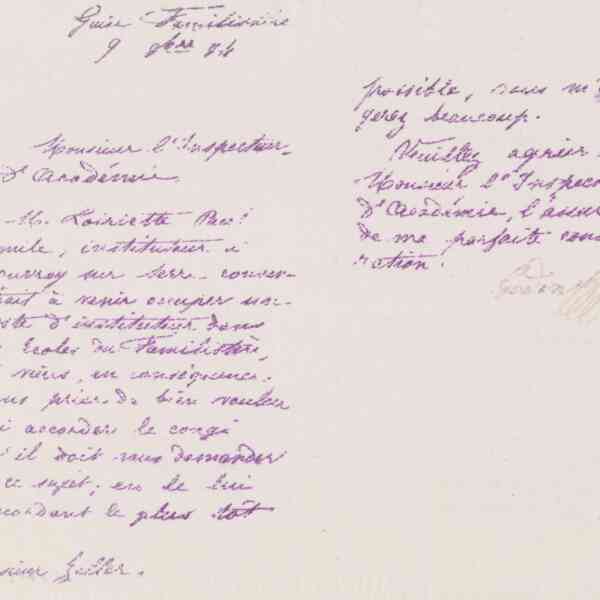 Guise Familistère
9 9bre 74
Monsieur l'Inspecteur
d'Académie
M. Loiriette Paul
mile, instituteur à
sur Serre consen-
tait à venir occuper un
ste d'instituteur dans
s Ecoles du Familistère,
vous, en conséquence,
ous prier de bien vouloir
i accorder le congé
'il doit vous demander
ce sujet; en le lui
cordant le plus tôt
sieur Gailler.
possible, vous m'o
gerez beaucoup.
Veuillez agréer
Monsieur l'Inspec
d'Académie, l'assur
de ma parfaite consi
ration.
Godin